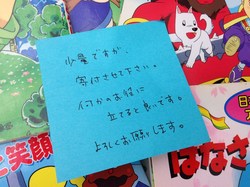 少量ですが、
寄付させて下さい。
何かのお役に
立てると良いです。
よろしくお願いします。
と笑顔
はなさ